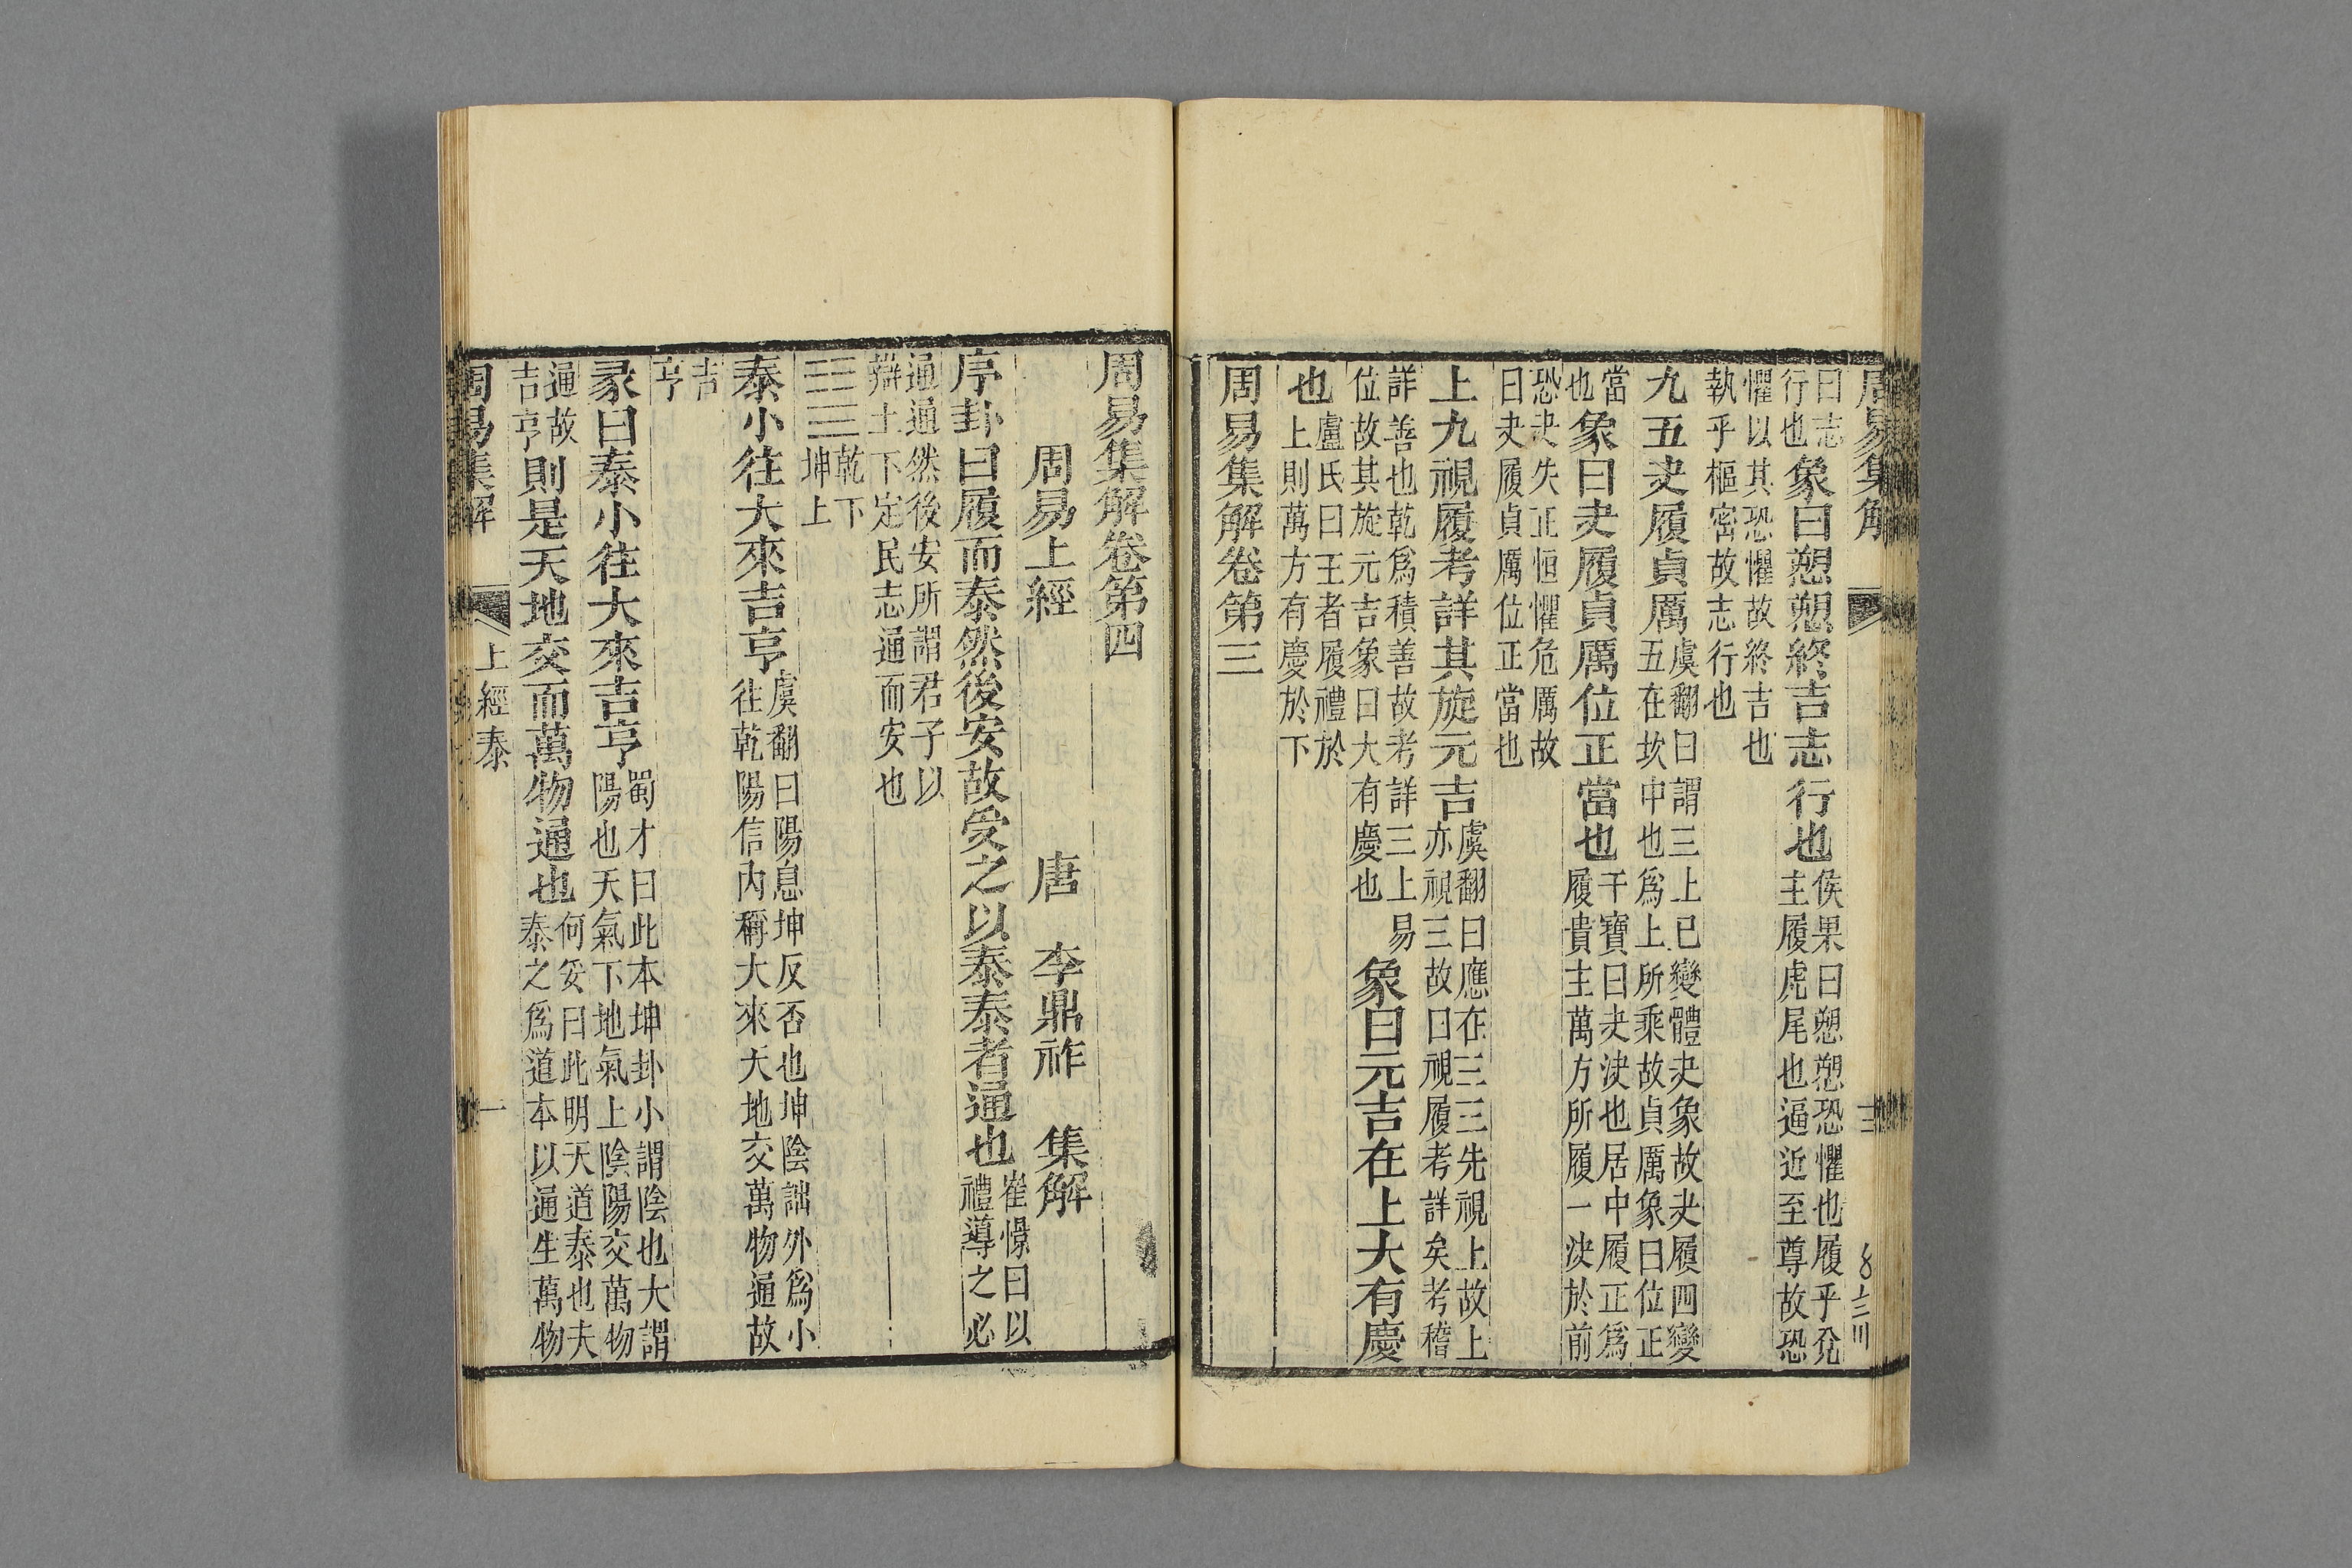 周易集解
十三
曰志行也象曰愬愬終吉志行也侯果曰愬愬恐懼也履乎兊主履虎尾也逼近至尊故恐
懼以其恐懼故終吉也執乎樞密故志行也
九五夬履貞厲虞翻曰謂三上已變體夬象故夬履四變五在坎中也爲上所乘故貞厲象曰位正
當也象曰夬履貞厲位正當也干寶曰夬決也居中履正爲履貴主萬方所履一決於前
恐夬失正恒懼危厲故曰夬履貞厲位正當也
上九視履考詳其旋元吉虞翻曰應在三三先視上故上亦視三故曰視履考詳矣考稽
詳善也乾爲積善故考詳三上易位故其旋元吉象曰大有慶也象曰元吉在上大有慶
也盧氏曰王者履禮於上則萬方有慶於下
周易集解卷第三
周易集解卷第四
周易上經 唐 李鼎祚 集解
序卦曰履而泰然後安故受之以泰泰者通也崔憬曰以禮導之必
通通然後安所謂君子以辯上下定民志通而安也
乾下坤上
泰小往大來吉亨虞翻曰陽息坤反否也坤陰詘外爲小往乾陽信內稱大來天地交萬物通故
吉亨
彖曰泰小往大來吉亨蜀才曰此本坤卦小謂陰也大謂陽也天氣下地氣上陰陽交萬物
通故吉亨則是天地交而萬物通也何妥曰此明天道泰也夫泰之爲道本以通生萬物
周易集解
上經泰
一